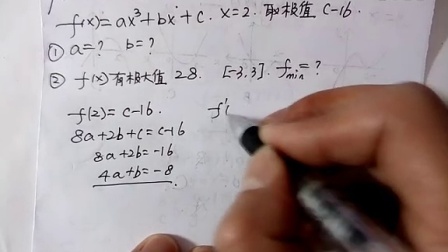 f(x)=ax³+bx+c. x=2. 取极值 c-16
① a=? b=?
② f(x)有极大值28. [-3,3]. f min=?
f(2)=c-16. f'(
8a+2b+c=c-16
8a+2b=-16
4a+b=-8